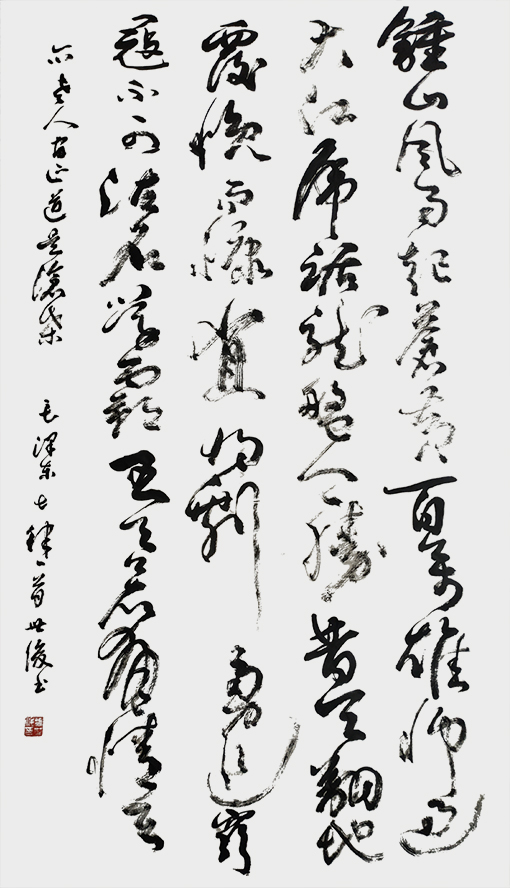 鍾山風雨起蒼黄百萬雄師過
大江虎踞龍盤今勝昔天翻地
覆慨而慷宜將剩勇追窮
寇不可沽名學霸王天若有情天
亦老人間正道是滄桑 毛澤東七律一首世俊書